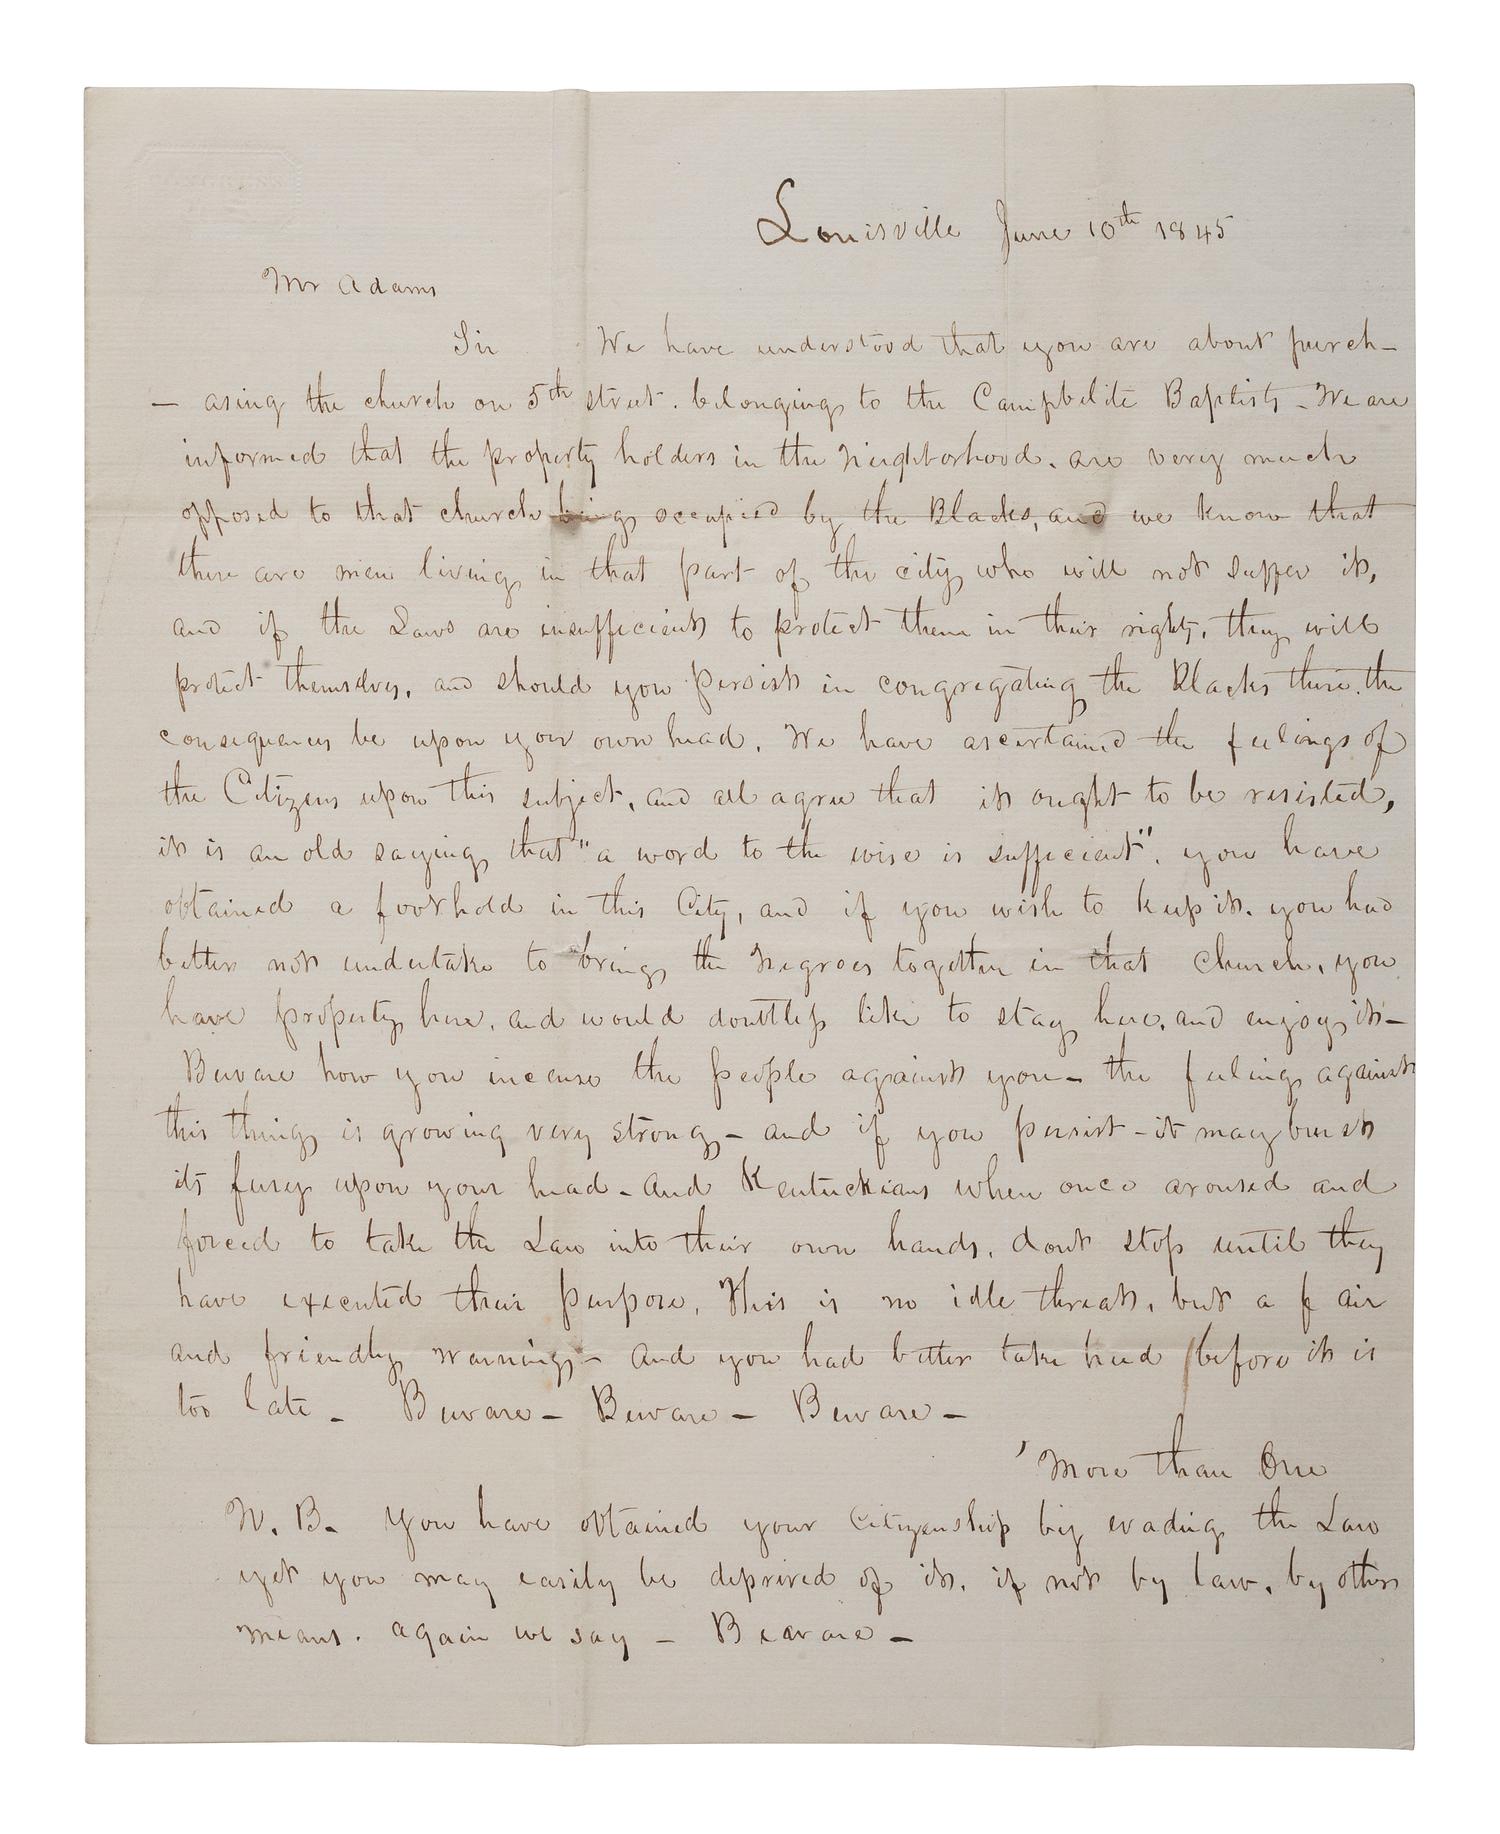 Louisville June 10th 1845
Mr Adams
Sir We have understood that you are about purch-
- asing the church on 5th street. belonging to the Campbelite Baptists - We are
informed that the property holders in the Neighborhood. are very much
opposed to that church being occupied by the Blacks, and we know that
there are men living in that part of the city who will not suffer it,
and if the Laws are insufficient to protect them in their rights, they will
protect themselves, and should you persist in congregating the Blacks there. the
consequences be upon your own head. We have ascertained the feelings of
the Citizens upon this subject, and all agree that it ought to be resisted,
it is an old saying that "a word to the wise is sufficient". you have
obtained a foothold in this City, and if you wish to keep it. you had
better not undertake to bring the Negroes together in that Church, you
have property here, and would doubtless like to stay here, and enjoy it -
Beware how you incense the people against you - the feeling against
this thing is growing very strong - and if you persist - it may burst
its fury upon your head - And Kentuckians when once aroused and
forced to take the Law into their own hands, dont stop until they
have executed their purpose. This is no idle threat, but a fair
and friendly warning - And you had better take heed before it is
too late - Beware - Beware - Beware -
More than One
N. B. You have obtained your Citizenship by evading the Law
yet you may easily be deprived of it, if not by law, by other
means. again we say - Beware -